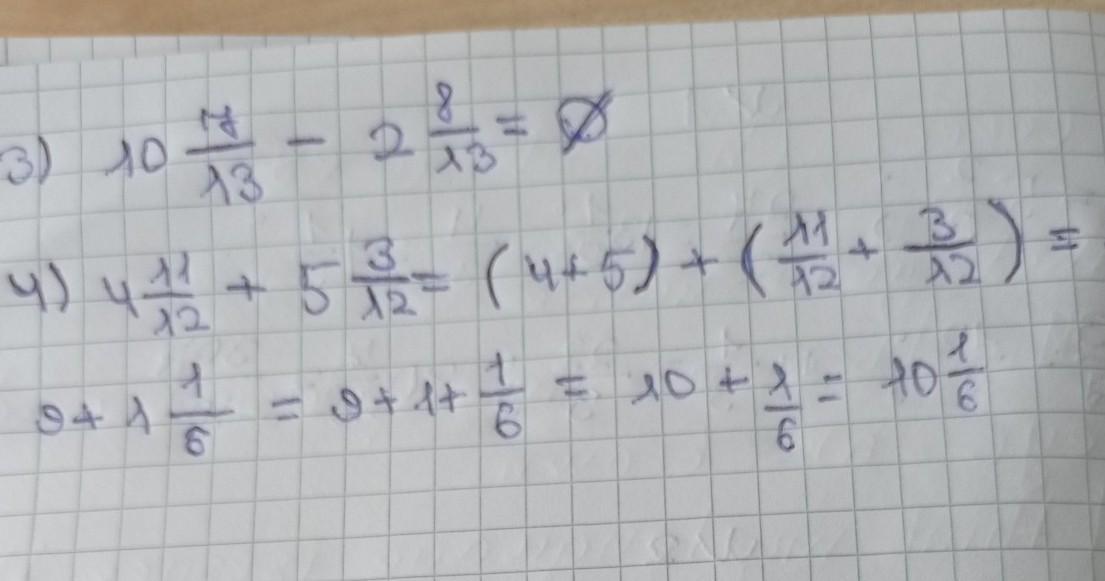 3) 10 7/13 - 2 8/13 = ∅
4) 4 11/12 + 5 3/12 = (4+5) + (11/12 + 3/12) =
9 + 1 1/6 = 9 + 1 + 1/6 = 10 + 1/6 = 10 1/6